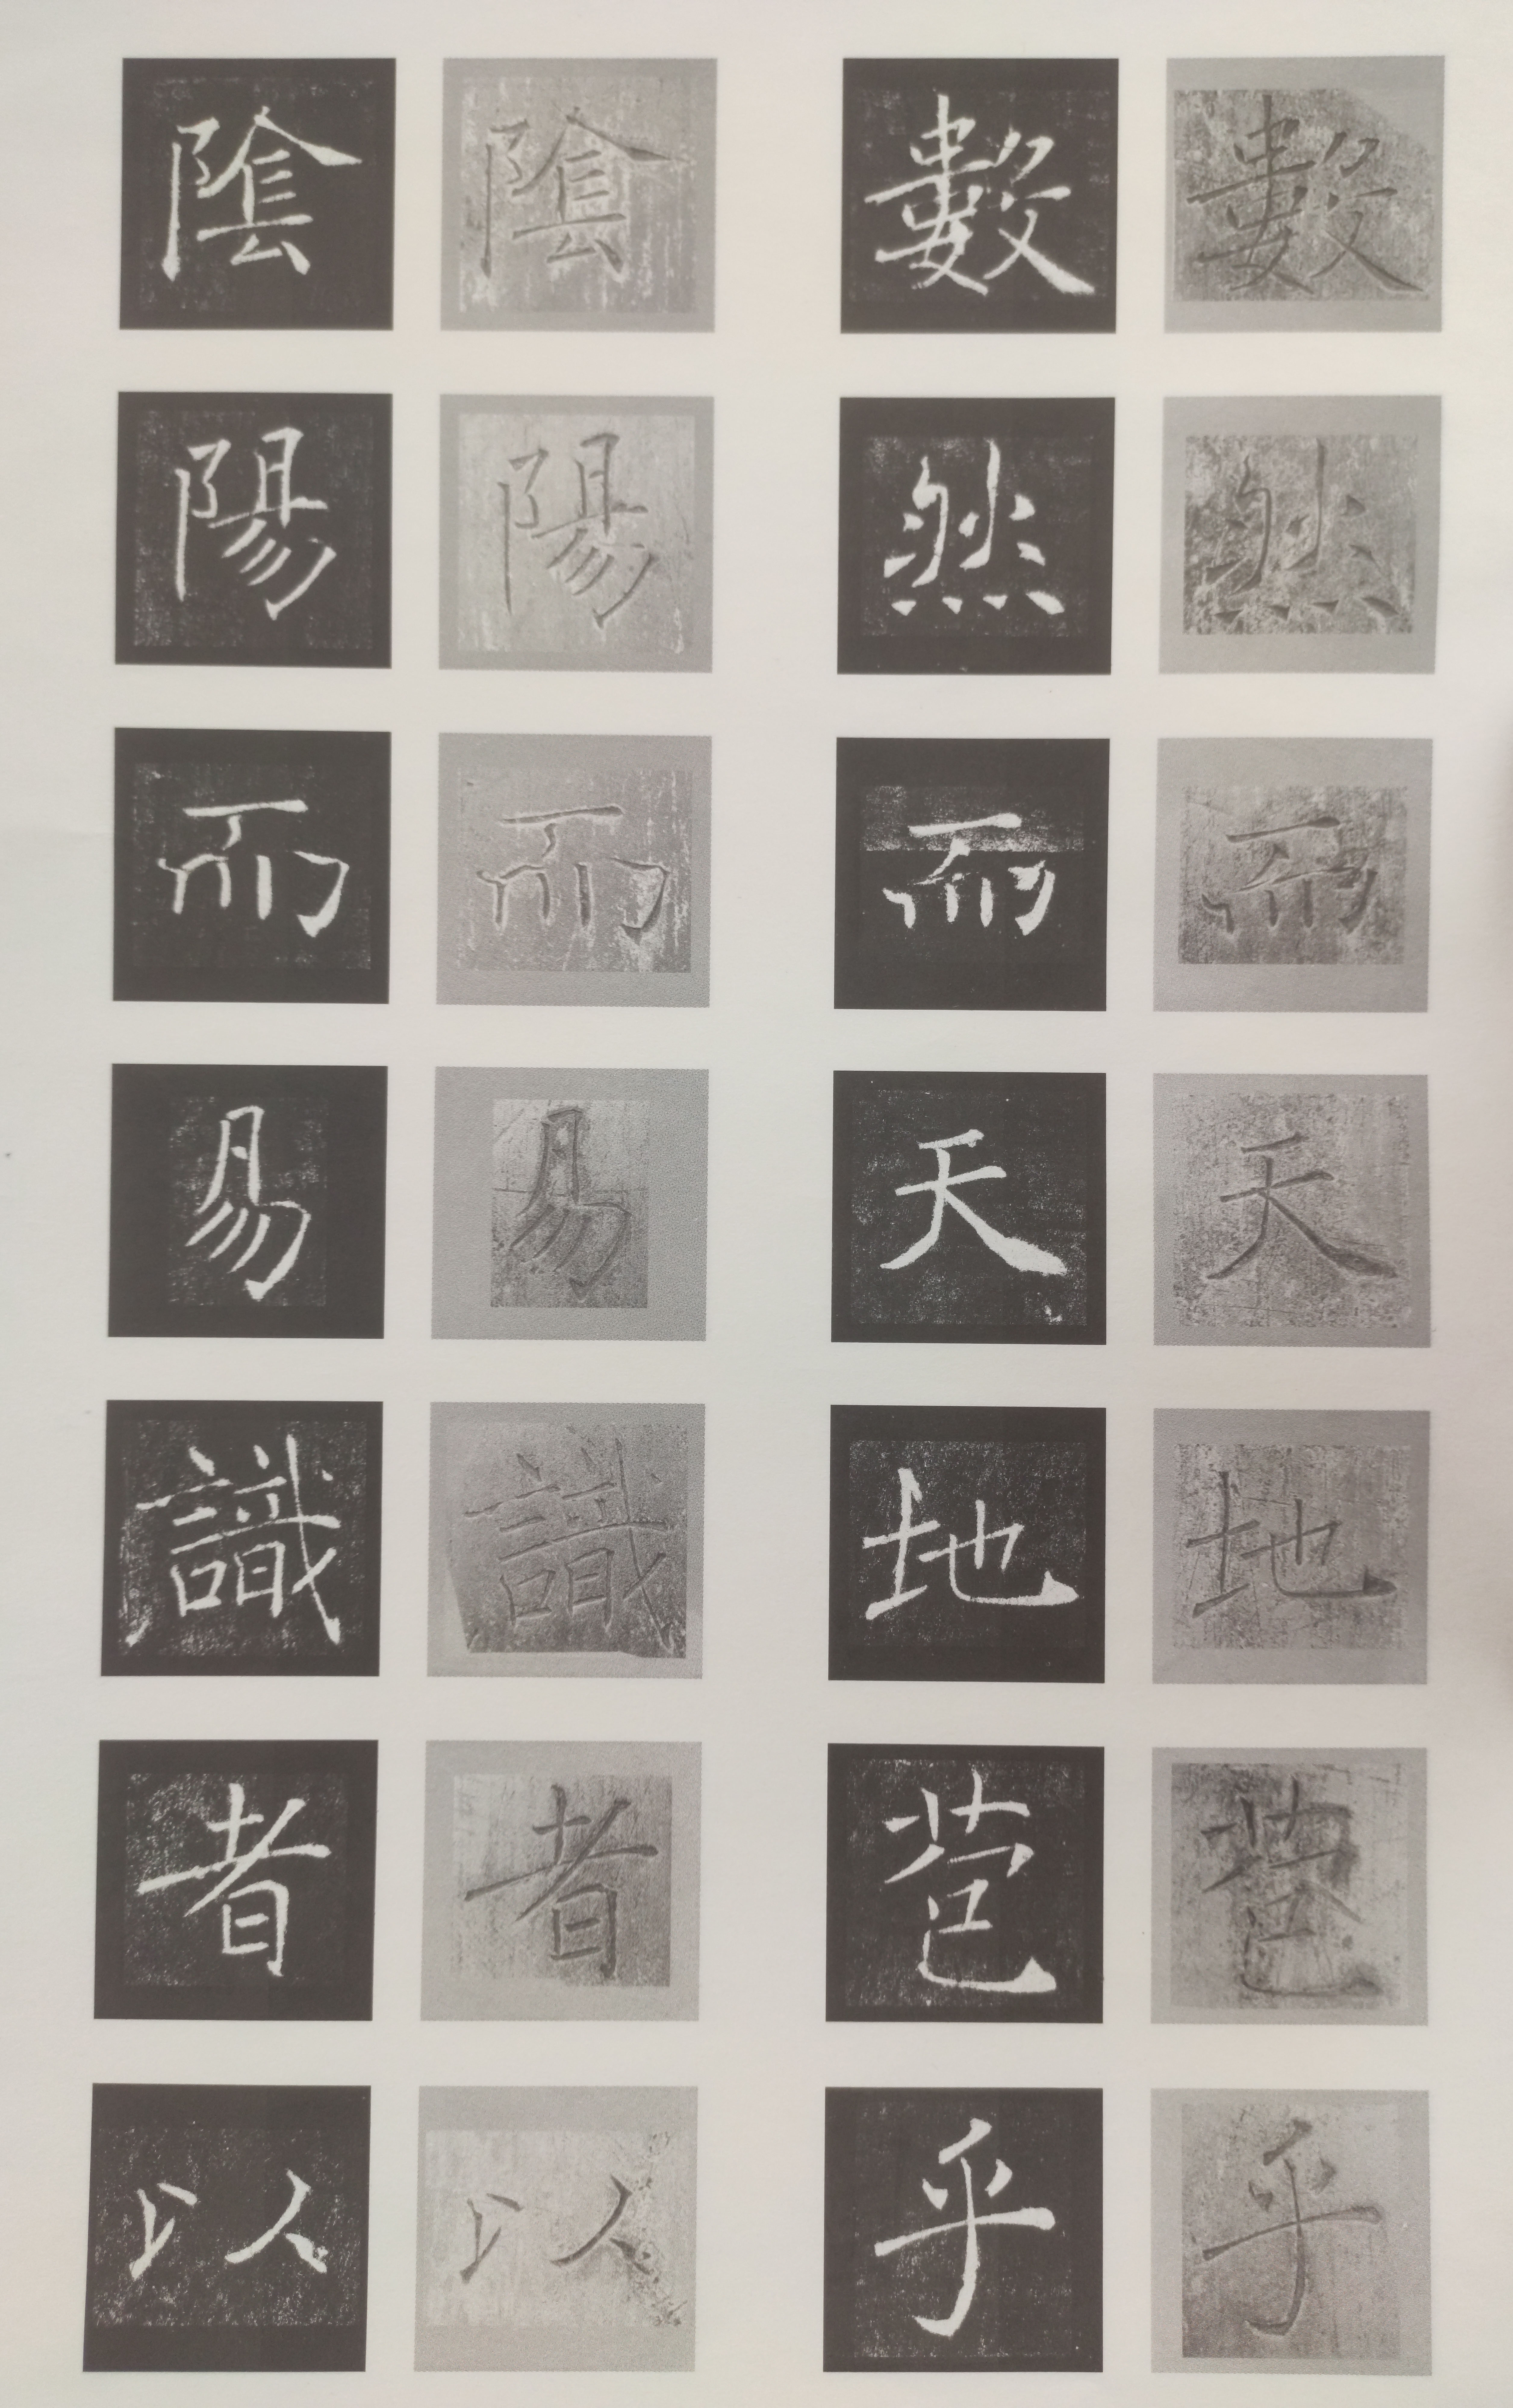 數然而天地苞乎
數然而天地苞乎
陰陽而易識者以
陰陽而易識者以